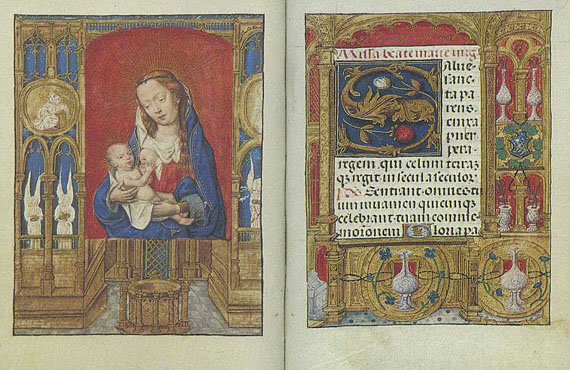 Missa beate marie virg
Alue
sanc
ta pa
rens
enixa
puer
pera
regem qui celum terraz
qz regit in secula seculor
ps Sentiant omnes tu
um iuuamen quicunqz
celebrant tuam comme
morionem Gloria pa